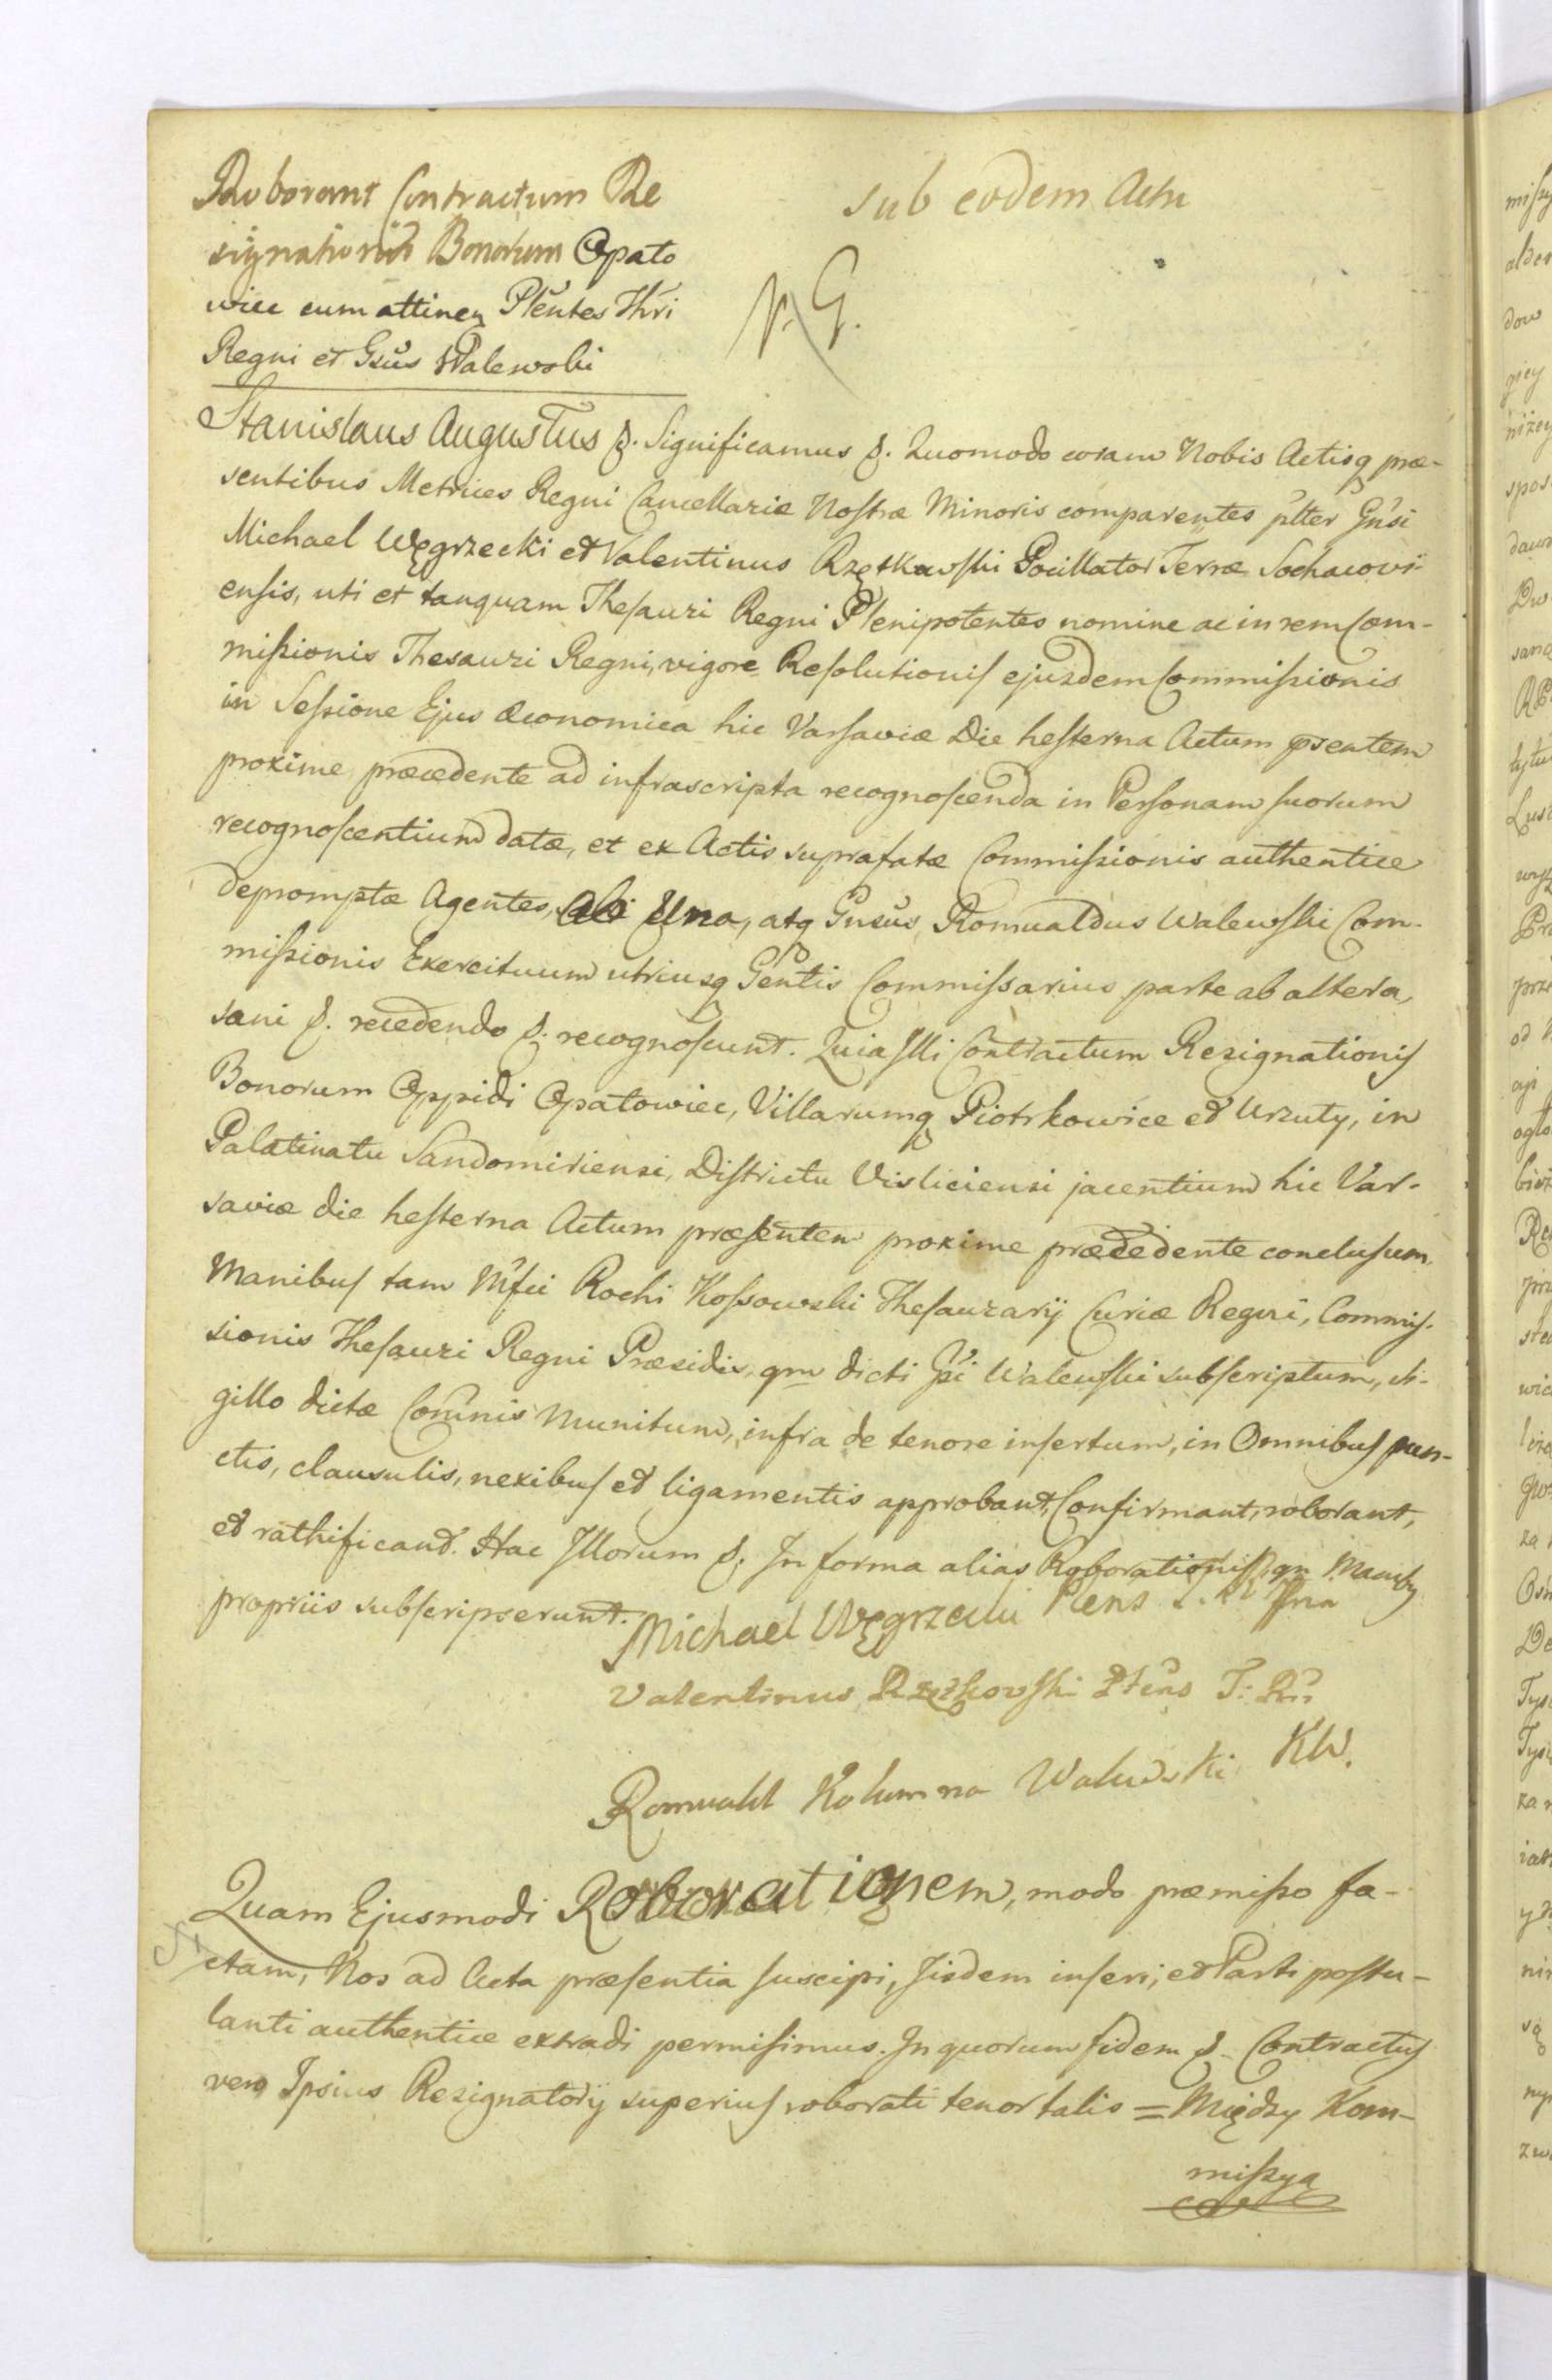 Roborant Contractum Re
signationis Bonorum Opato
wiec cum attinen Pleñtes Thri
Regni et Gsus Walewski
sub eodem Actu
Stanislaus Augustus &. Significamus &. Quomodo coram Nobis Actisq præ-
sentibus Metrices Regni Cancellariæ Nostræ Minoris comparentes pltter Gnsi
Michael Węgrzecki et Valentinus Rzętkowski Pocillator Terræ Sochacovi-
ensis, uti et tanquam Thesauri Regni Plenipotentes nomine ac in rem Com-
missionis Thesauri Regni, vigore Resolutionis ejusdem Commissionis
in Sessione Ejus Œconomica hic Varsaviæ Die hesterna Actum psentem
proxime præcedente ad infrascripta recognoscenda in Personam suorum
recognoscentium datæ, et ex Actis suprafatæ Commissionis authentice
depromptæ Agentes, ab Una, atq Gnsus Romualdus Walewski Com-
missionis Exercituum utriusq Gentis Commissarius parte ab altera,
sani &. recedendo &. recognoscunt. Quia Illi Contractum Resignationis
Bonorum Oppidi Opatowiec, Villarumq Piotrkowice et Urzuty, in
Palatinatu Sandomiriensi, Districtu Visliciensi jacentium hic Var-
saviæ die hesterna Actum præsentem proxime præcedente conclusum,
Manibus tam Mfci Rochi Kossowski Thesaurarij Curiæ Regni, Commis-
sionis Thesauri Regni Præsidis, qm dicti Gsi Walewski subscriptum, si-
gillo dictæ Comnis munitum, infra de tenore insertum, in Omnibus pun-
ctis, clausulis, nexibus et ligamentis approbant, Confirmant, roborant,
et rathificant. Hac Illorum &. In forma alias Roborationis, qn Manibq
propriis subscripserunt.
Michael Węgrzecki Plens T. R.
Valentinus Rzętkowski Plens T: R:
Romuald Kolumna Walewski KW.
Quam Ejusmodi Roborationem, modo præmisso fa-
ctam, Nos ad Acta præsentia suscipi, Iisdem inseri, et Parti postu-
lanti authentice extradi permisimus. In quorum fidem &. Contractus
vero Ipsius Resignatorij superius roborati tenor talis = Między Kom-
missyą